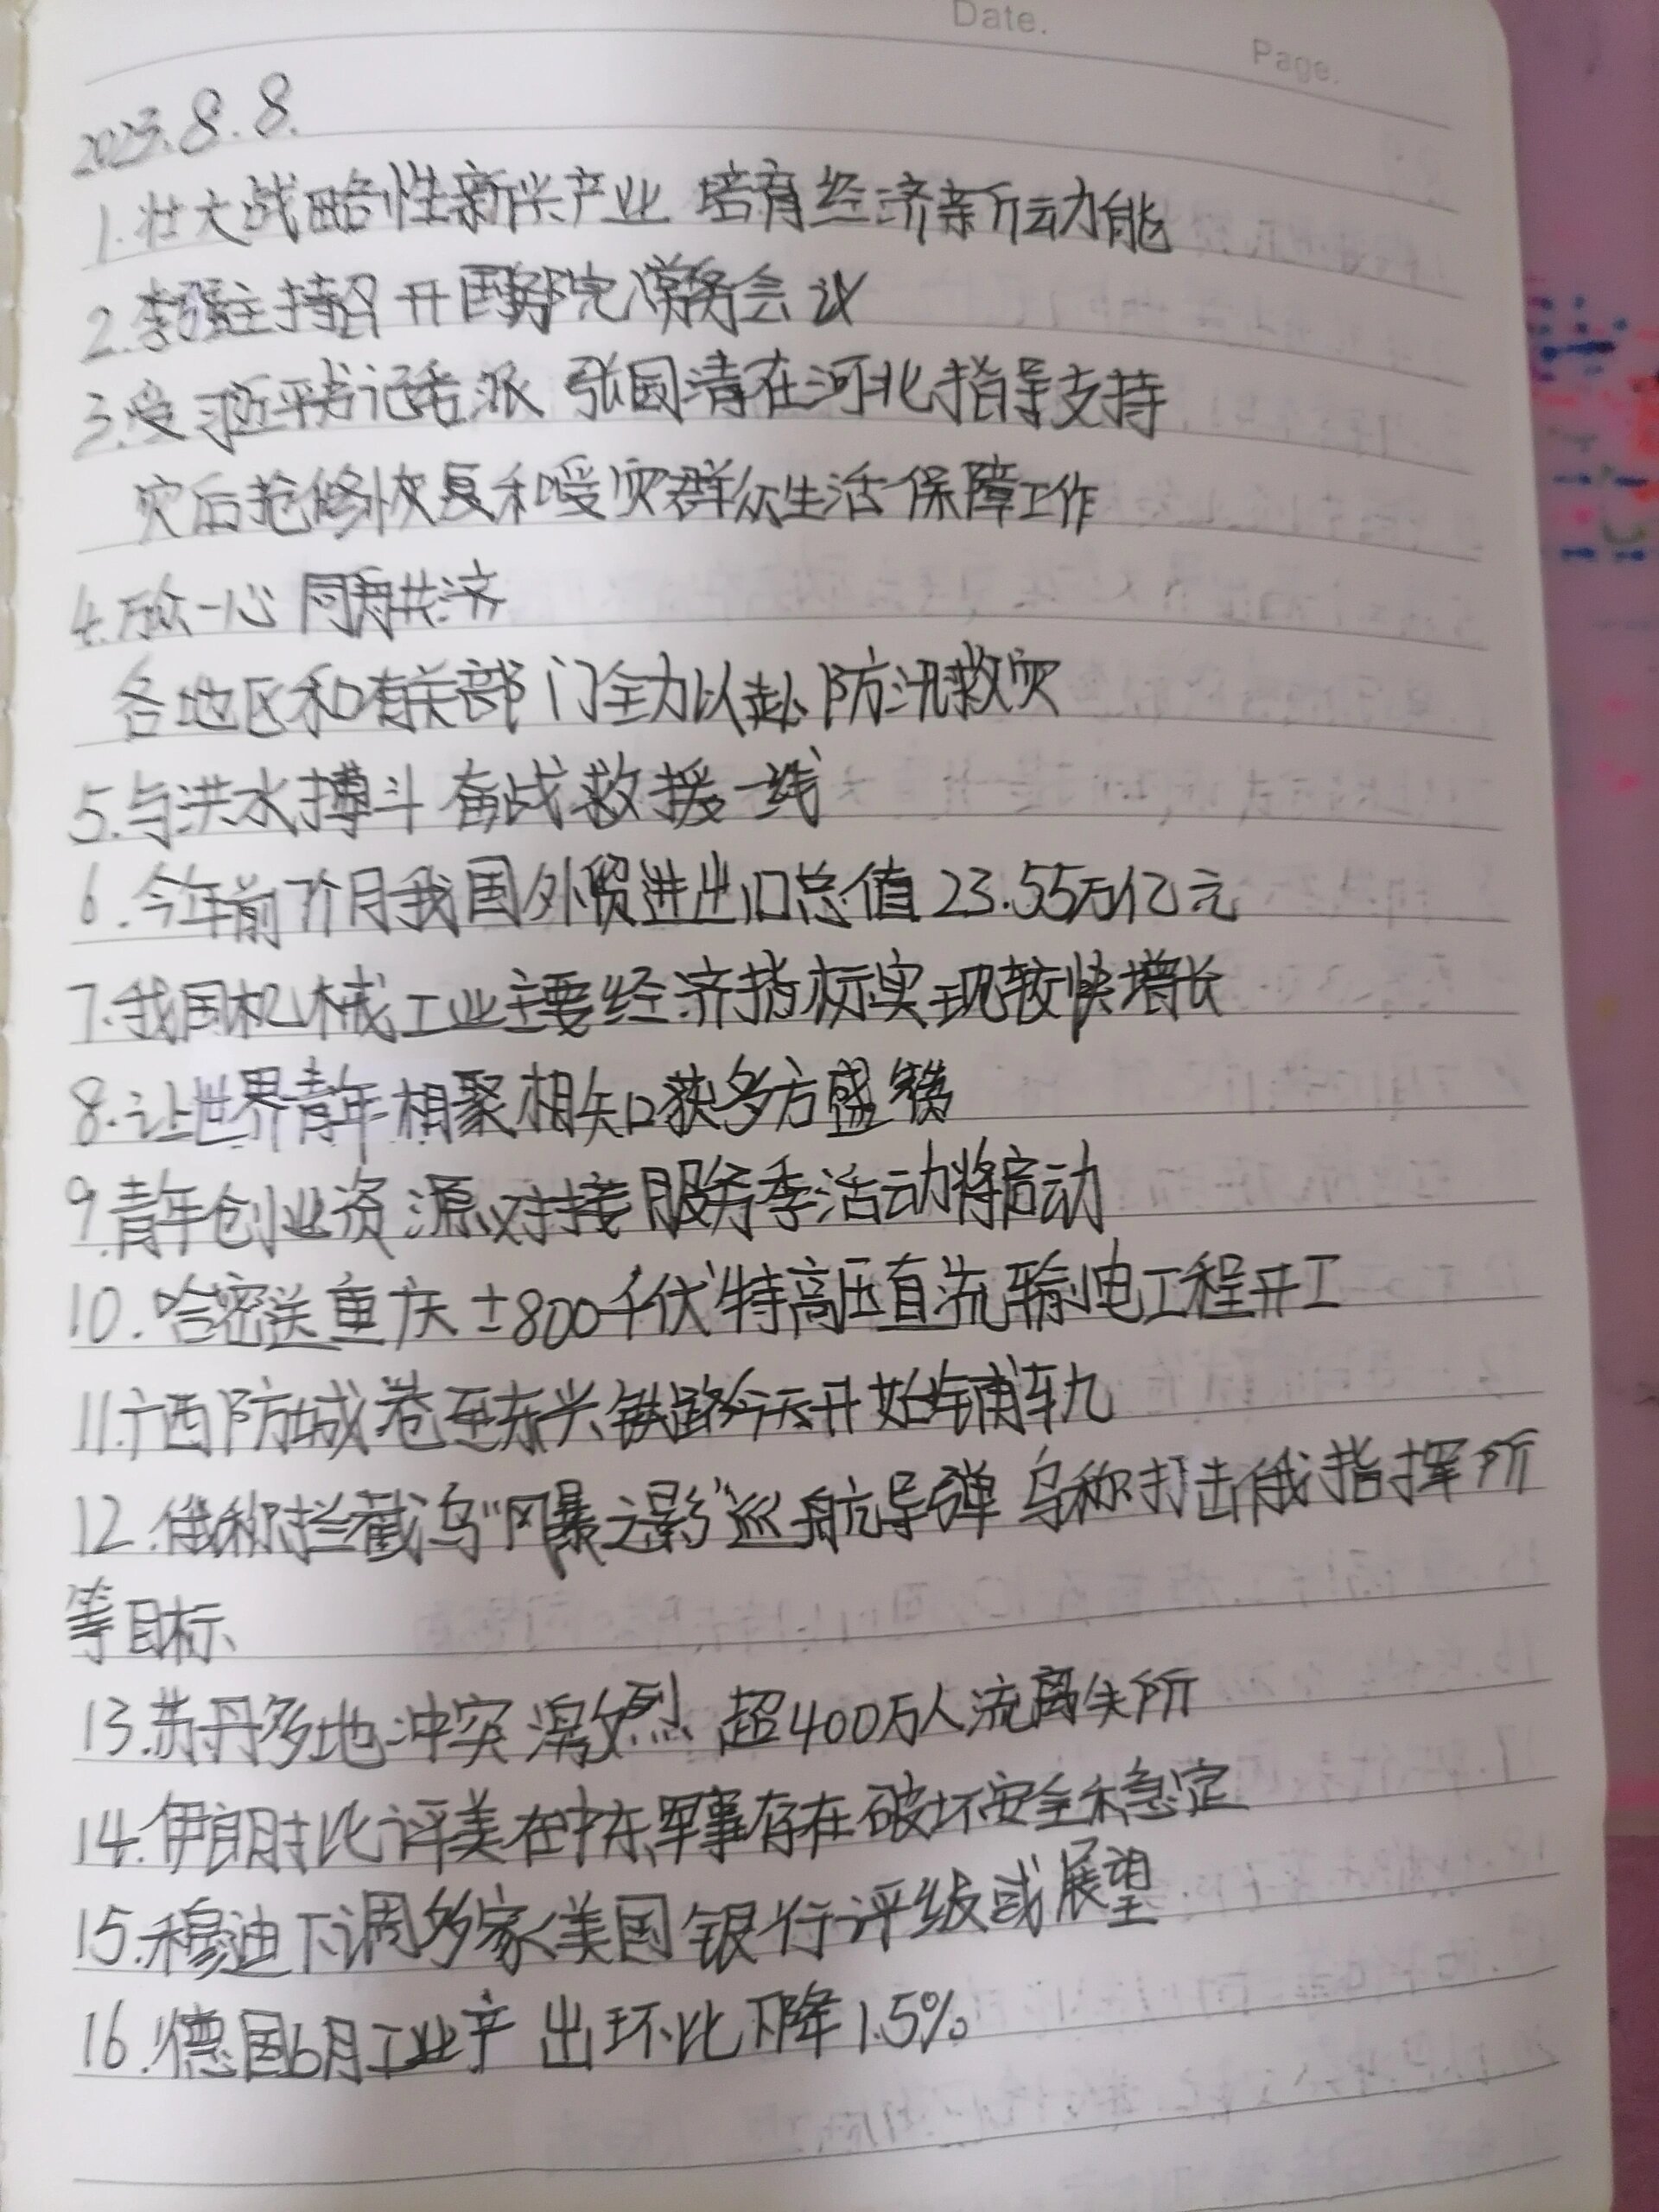 Date.
Page.
2023.8.8.
1.壮大战略性新兴产业 培育经济新动能
2.李强主持召开国务院常务会议
3.受习近平书记委派 张国清在河北指导支持
灾后抢修恢复和受灾群众生活保障工作
4.万众一心 同舟共济
各地区和有关部门全力以赴防汛救灾
5.与洪水搏斗 奋战救援一线
6.今年前7个月我国外贸进出口总值23.55万亿元
7.我国机械工业主要经济指标实现较快增长
8.让世界青年相聚相知获多方盛赞
9.青年创业资源对接服务季活动将启动
10.哈密送重庆±800千伏特高压直流输电工程开工
11.广西防城港至东兴铁路今天开始铺轨
12.俄称拦截乌“风暴之影”巡航导弹 乌称打击俄指挥所
等目标
13.苏丹多地冲突激烈 超400万人流离失所
14.伊朗批评美在中东军事存在破坏安全和稳定
15.穆迪下调多家美国银行评级或展望
16.德国6月工业产出环比下降1.5%